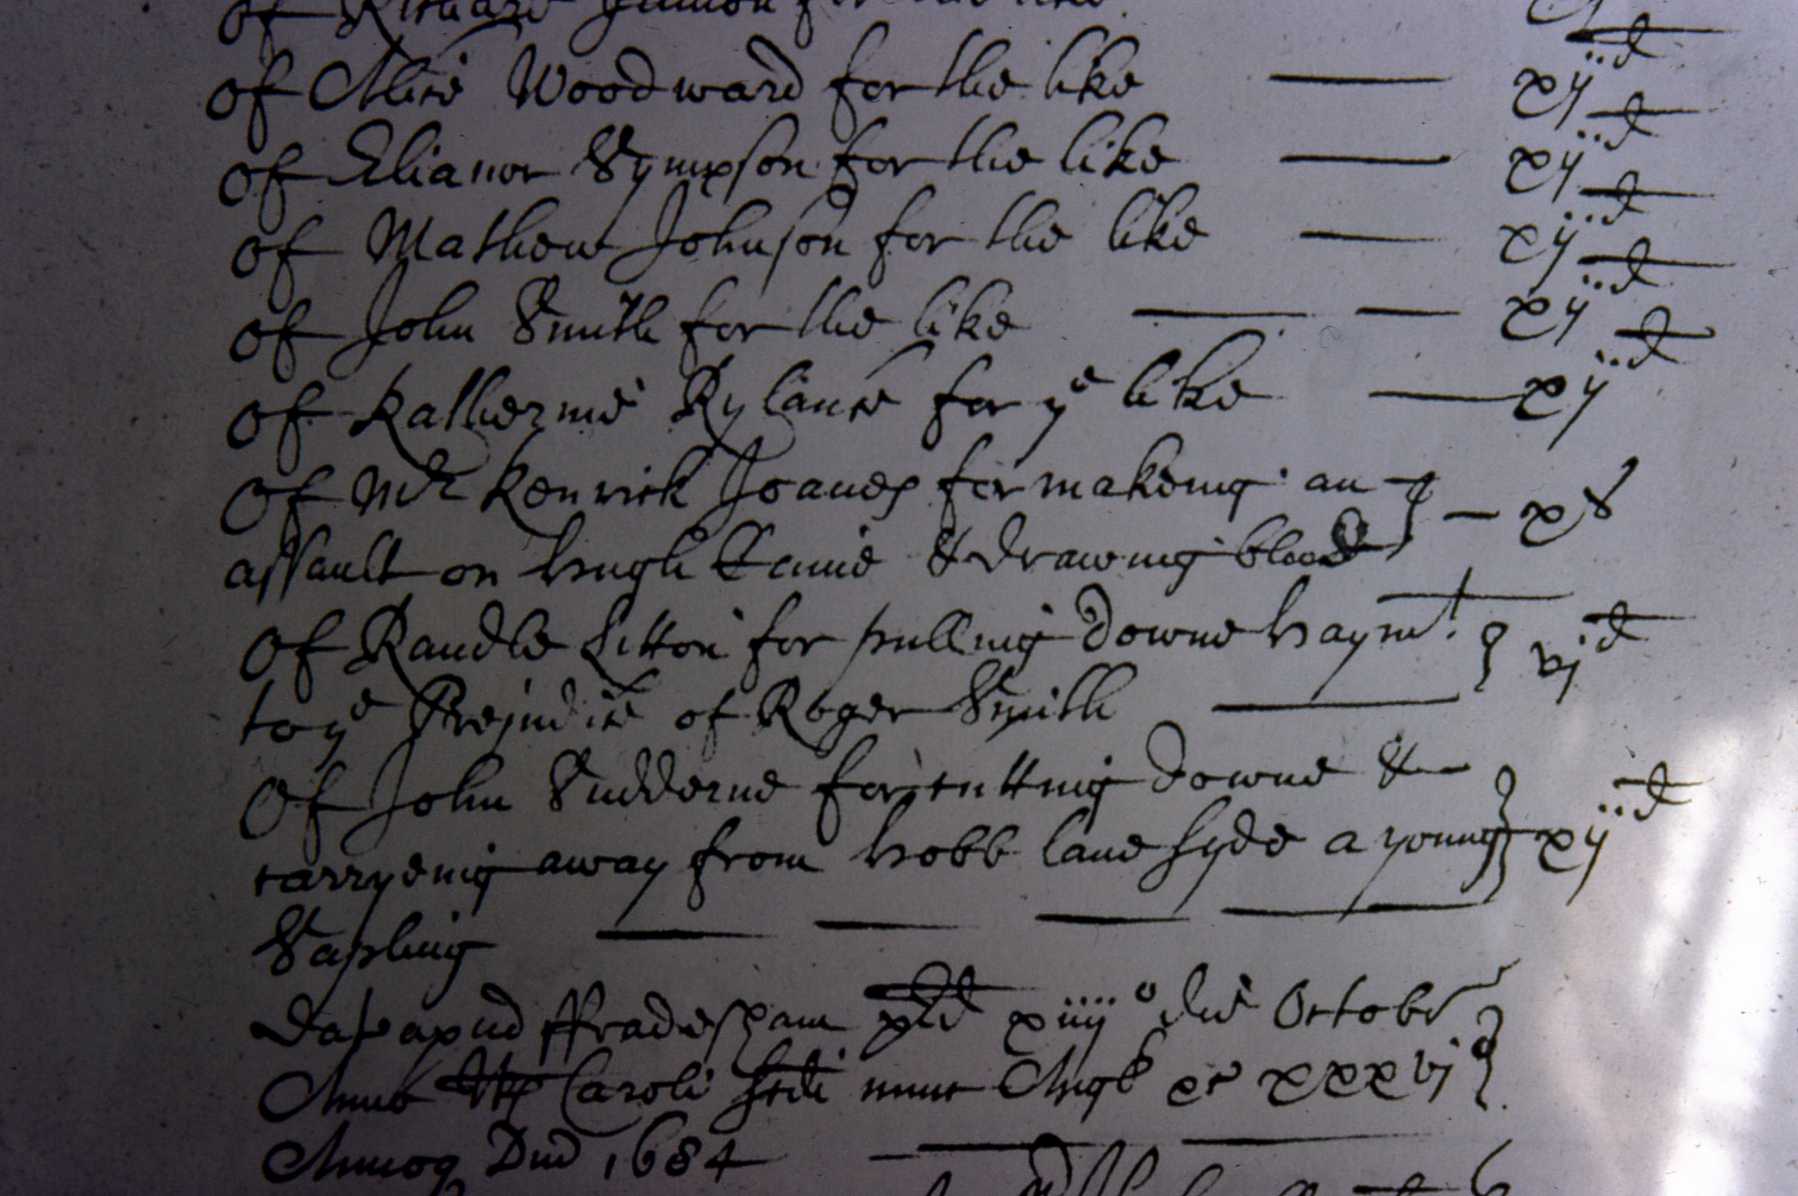 of Richard for the like
of Alice Woodward for the like — xij d
of Elianor Sympson for the like — xij d
of Mathew Johnson for the like — xij d
of John Smith for the like — — xij d
of Katherine Rylance for ye like — xij d
of Mr Kenrick Joanes for makeing an
assault on Hugh & drawing blood } — xs
of Randle Litton for pulling downe haymt
to ye Prejudice of Roger Smith — } vj d
of John Sudderne for cutting downe &
carryeing away from hobb lane syde a young } xij d
Sapling — — — —
Dat apud ffradesham xiiijo die Octobr
Annis Caroli Scdi nunc Angl &c xxxvjo }
Annoq Dni 1684 — —